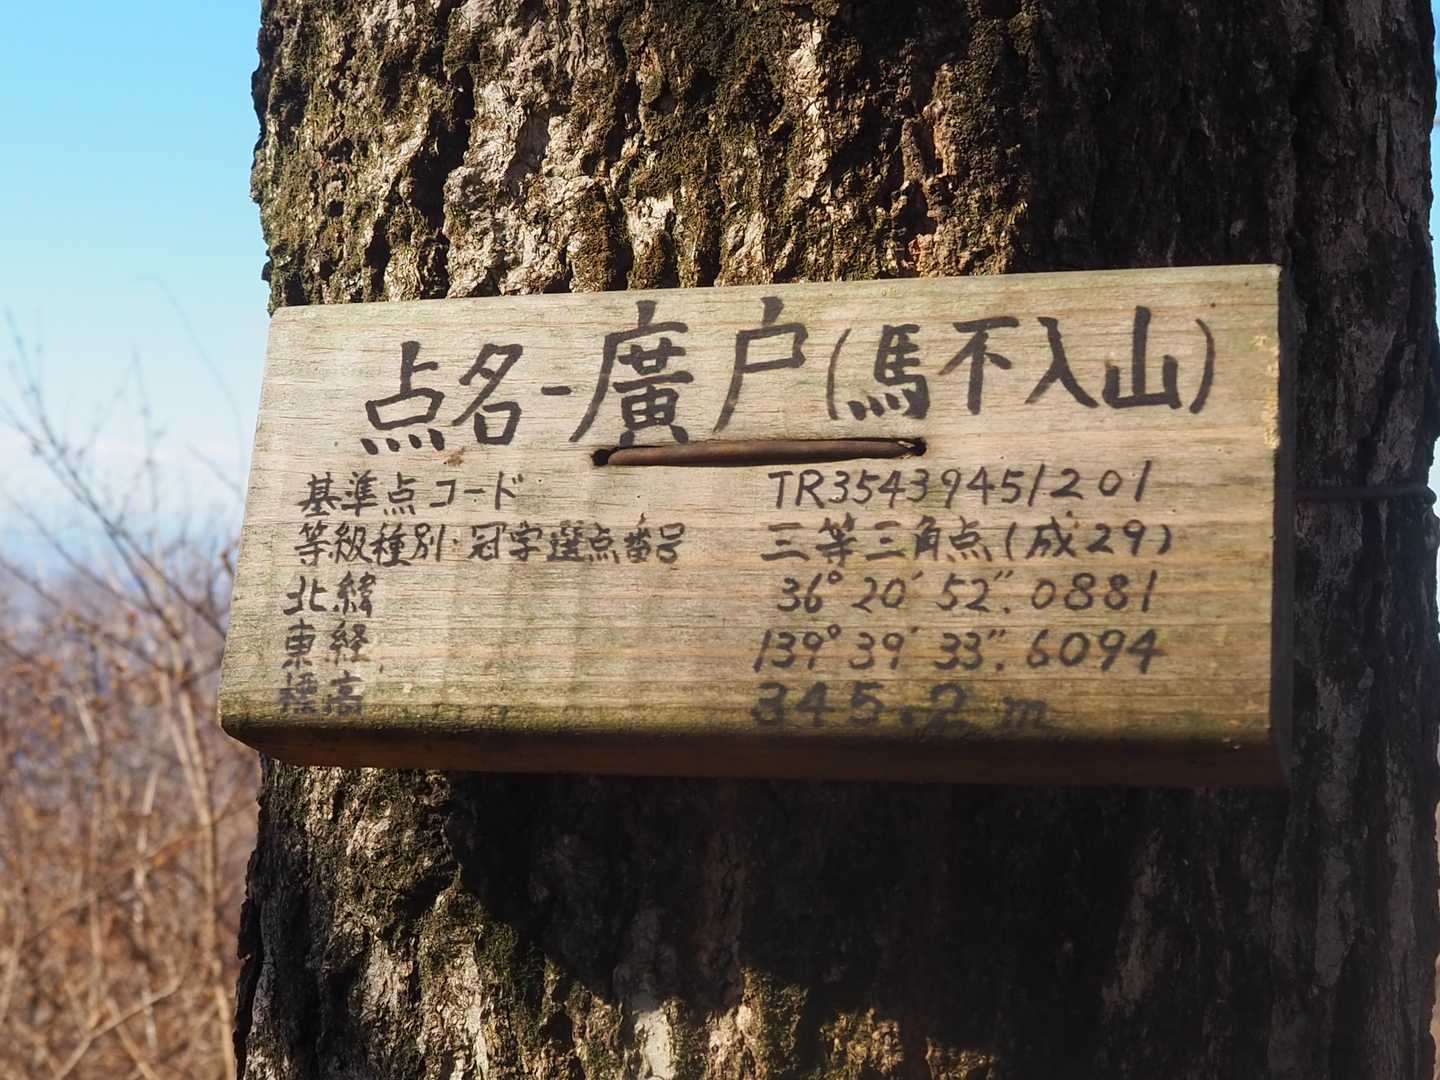 点名-廣戸(馬不入山)
基準点コード TR35439451201
等級種別・冠字選点番号 三等三角点(成29)
北緯 36°20′52″.0881
東経 139°39′33″.6094
標高 345.2m